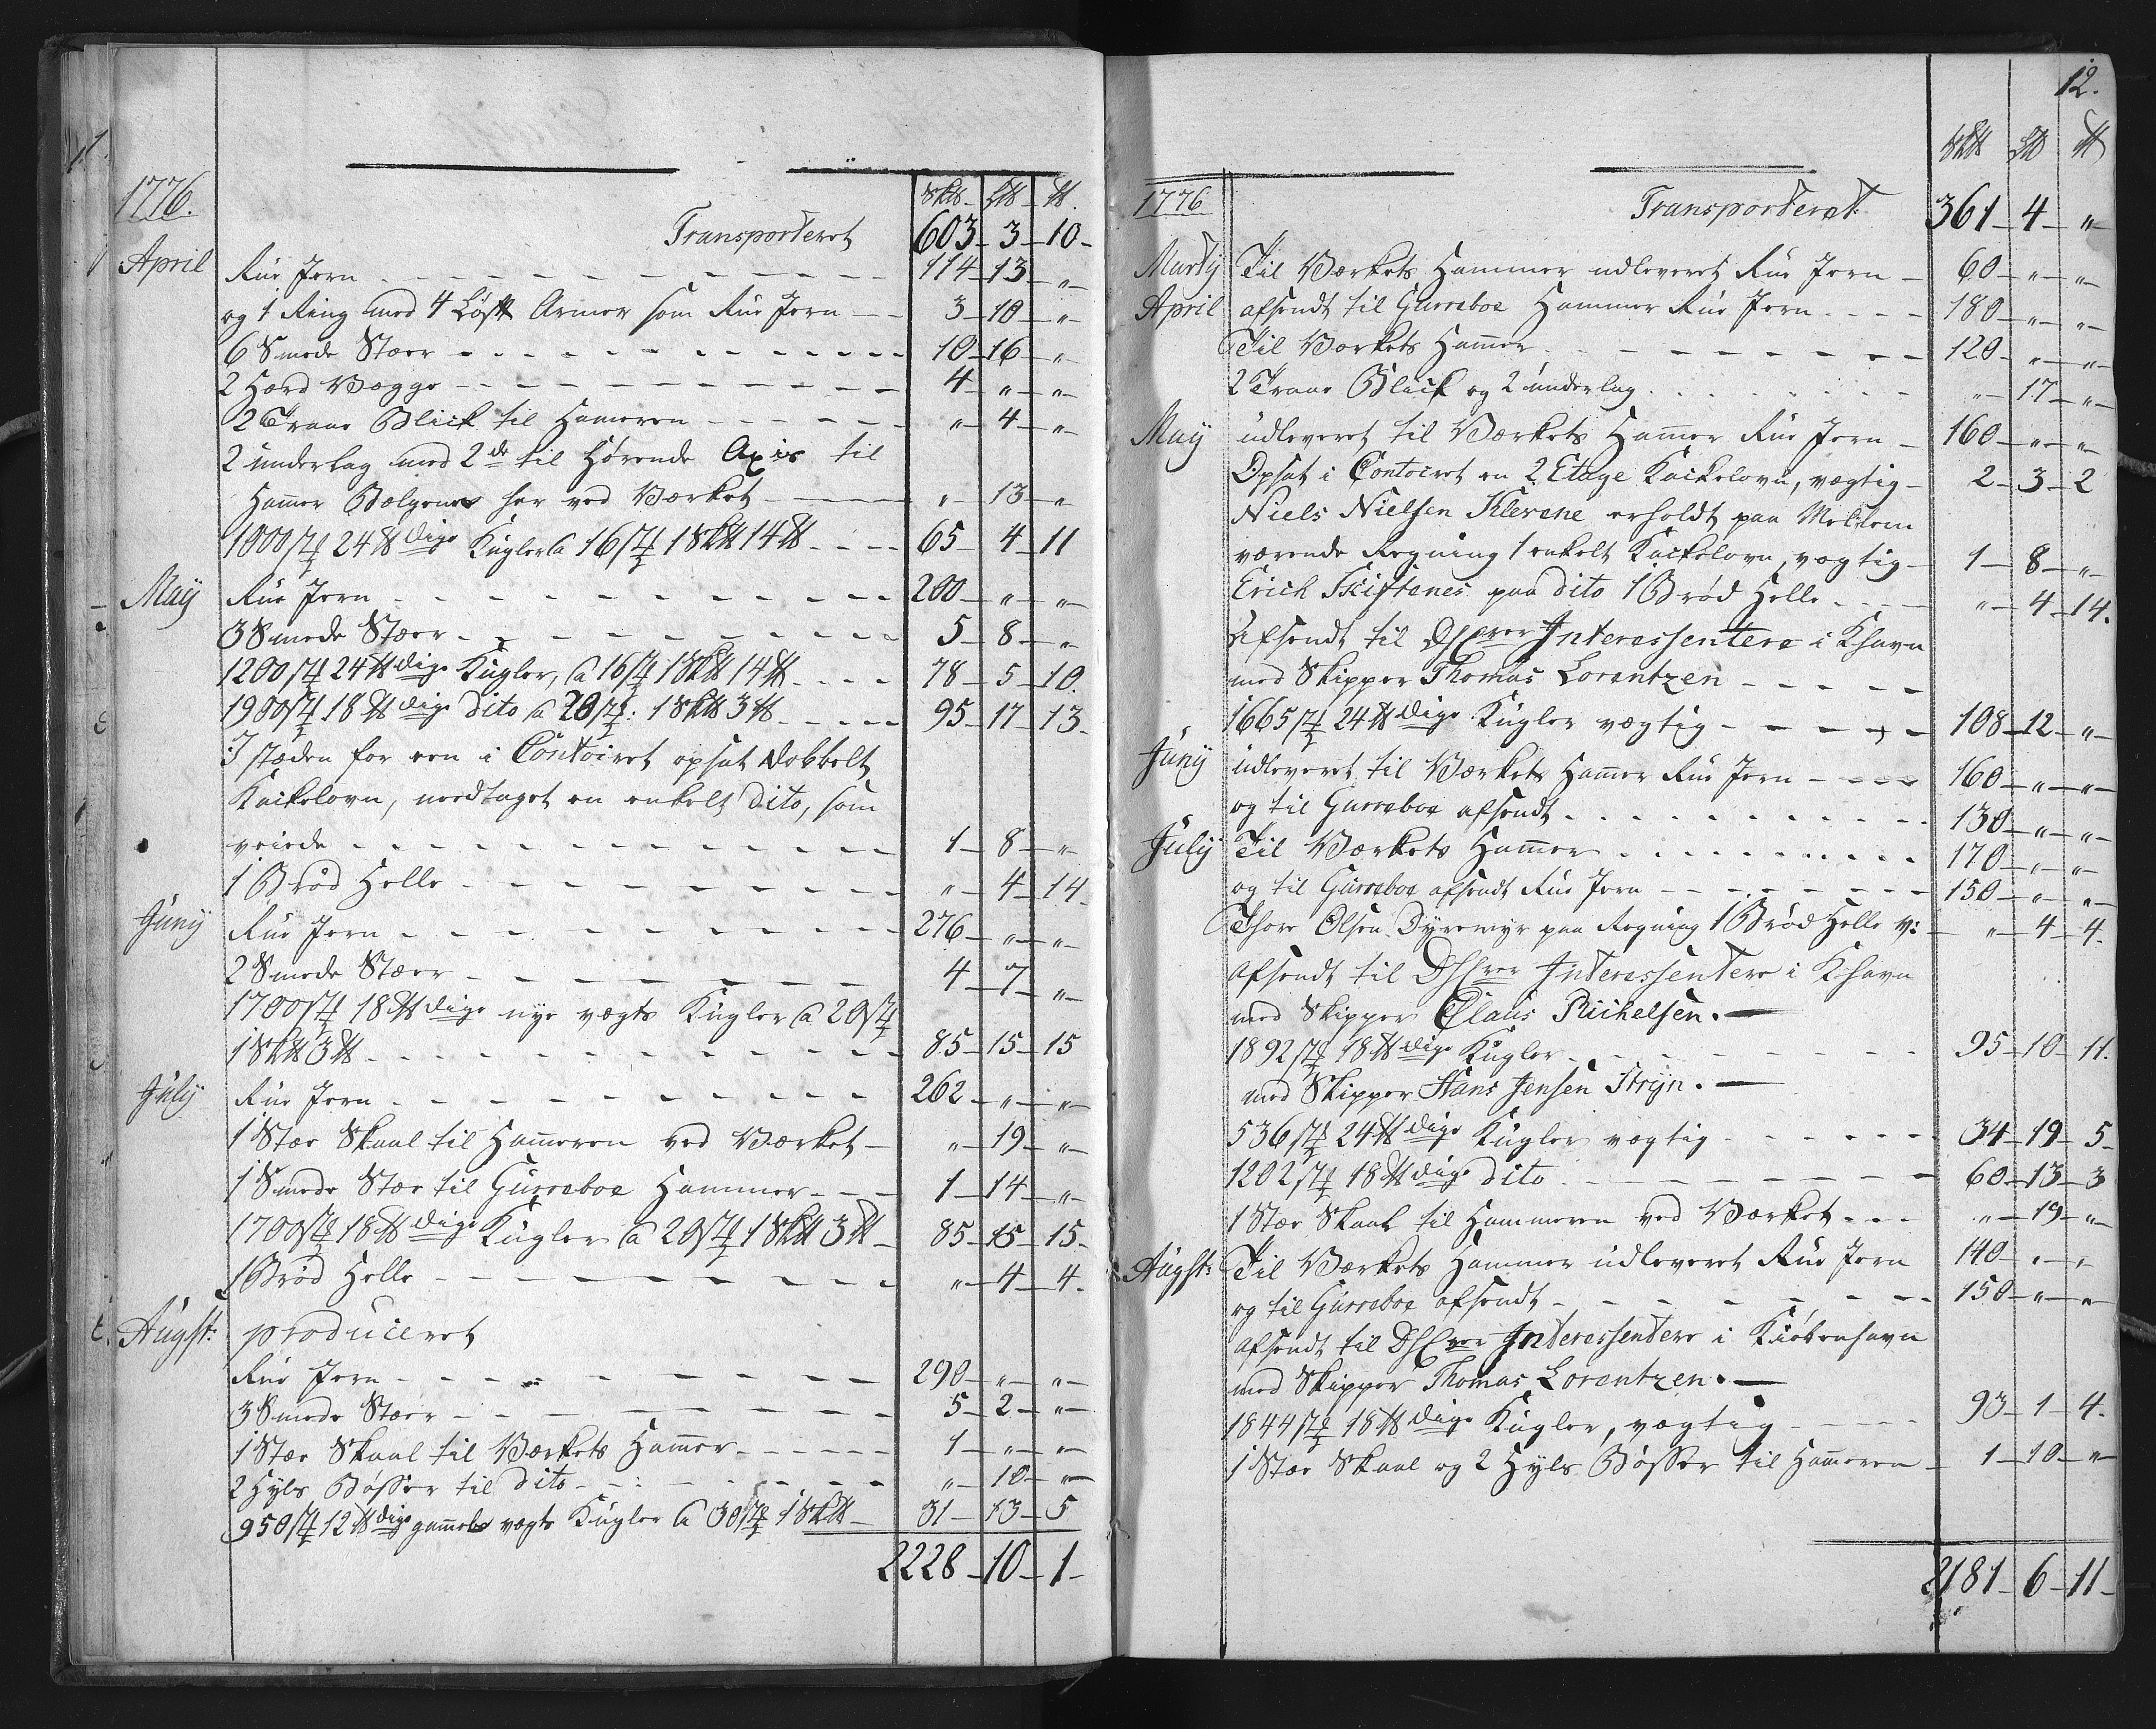 1776.
Sk℔ L℔ ℔
Transporteret 603 - 3 - 10 -
April Rue Jern 114 - 13 - "
og 1 Ring med 4 Løse Armer som Rue Jern 3 - 10 - "
6 Smede Stæer 10 - 16 - "
2 Herd Vægge 4 - " - "
2 Traae Blick til Hameren " - 4 - "
2 underlag med 2de til hørende Axis til
Hamer Bælgene her ved Værket " - 13 - "
1000 st 24 ℔dige Kugler a 16 st 1 Sk℔ 14 ℔ 65 - 4 - 11
Maij Rue Jern 200 - " - "
3 Smede Stæer 5 - 8 - "
1200 st 24 ℔dige Kugler, a 16 st 1 Sk℔ 14 ℔ 78 - 5 - 10.
1900 st 18 ℔dige dito a 20 st: 1 Sk℔ 3 ℔ 95 - 17 - 13.
I stæden for een i Contoiret opsat dobbelt
Kackelovn, nedtaget en enkelt dito, som
veiede 1 - 8 - "
1 Brød Helle " - 4 - 14.
Junij Rue Jern 276 - " - "
2 Smede Stæer 4 - 7 - "
1700 st 18 ℔dige nye vægts Kugler a 20 st
1 Sk℔ 3 ℔ 85 - 15 - 15
Julij Rue Jern 262 - " - "
1 Stæe Skaal til Hameren ved Værket " - 19 - "
1 Smede Stæe til Gurreboe Hammer 1 - 14 - "
1700 st 18 ℔dige Kugler a 20 st 1 Sk℔ 3 ℔ 85 - 15 - 15.
1 Brød Helle " - 4 - 4.
Augst: produceret
Rue Jern 290 - " - "
3 Smede Stæer 5 - 2 - "
1 Stæe Skaal til Værkets Hamer 1 - " - "
2 Hyls Bøsser til dito " - 10 - "
950 st 12 ℔dige gamels vægts Kugler a 30 st 1 Sk℔ 31 - 13 - 5
2228 - 10 - 1 -
12.
Sk℔ L℔ ℔
1776 Transporteret 361 - 4 - "
Martij Til Værkets Hammer udleveret Rue Jern 60 - " - "
April afsendt til Gurreboe Hammer Rue Jern 180 - " - "
Til Værkets Hamer 120 - " - "
2 Traae Blick og 2 underlag " - 17 - "
Maij udleveret til Værkets Hamer Rue Jern 160 - " - "
Opsat i Contoiret en 2 Etage Kackelovn, vægtig 2 - 3 - 2
Niels Nielsen Klevene erholdt paa Mellem
værende Regning 1 enkelt Kackelovn, vægtig 1 - 8 - "
Erich Skiftenes paa dito 1 Brød Helle " - 4 - 14.
Afsendt til DHrrer Interessentere i Khavn
med Skipper Thomas Lorentzen
1665 st 24 ℔dige Kugler vægtig 108 - 12 - "
Junij udleveret til Værkets Hamer Rue Jern 160 - " - "
og til Gurreboe afsendt 130 - " - "
Julij Til Værkets Hamer 170 - " - "
og til Gurreboe afsendt Rue Jern 150 - " - "
Thore Olsen Dyremyr paa Regning 1 Brød Helle v: " - 4 - 4.
afsendt til DHrrer Interessentere i Khavn
med Skipper Claus Michelsen.
1892 st 18 ℔dige Kugler 95 - 10 - 11.
med Skipper Hans Jensen Stryn.
536 st 24 ℔dige Kugler vægtig 34 - 19 - 5
1202 st 18 ℔dige dito 60 - 13 - 3
1 Stæe Skaal til Hammeren ved Værket " - 19 - "
Augst: Til Værkets Hammer udleveret Rue Jern 140 - " - "
og til Gurreboe afsendt 150 - " - "
afsendt til DHrrer Interessentere i Kiøbenhavn
med Skipper Thomas Lorentzen.
1844 st 18 ℔dige Kugler, vægtig 93 - 1 - 4.
1 Stæe Skaal og 2 Hyls Bøsser til Hameren 1 - 10 - "
2181 - 6 - 11 -